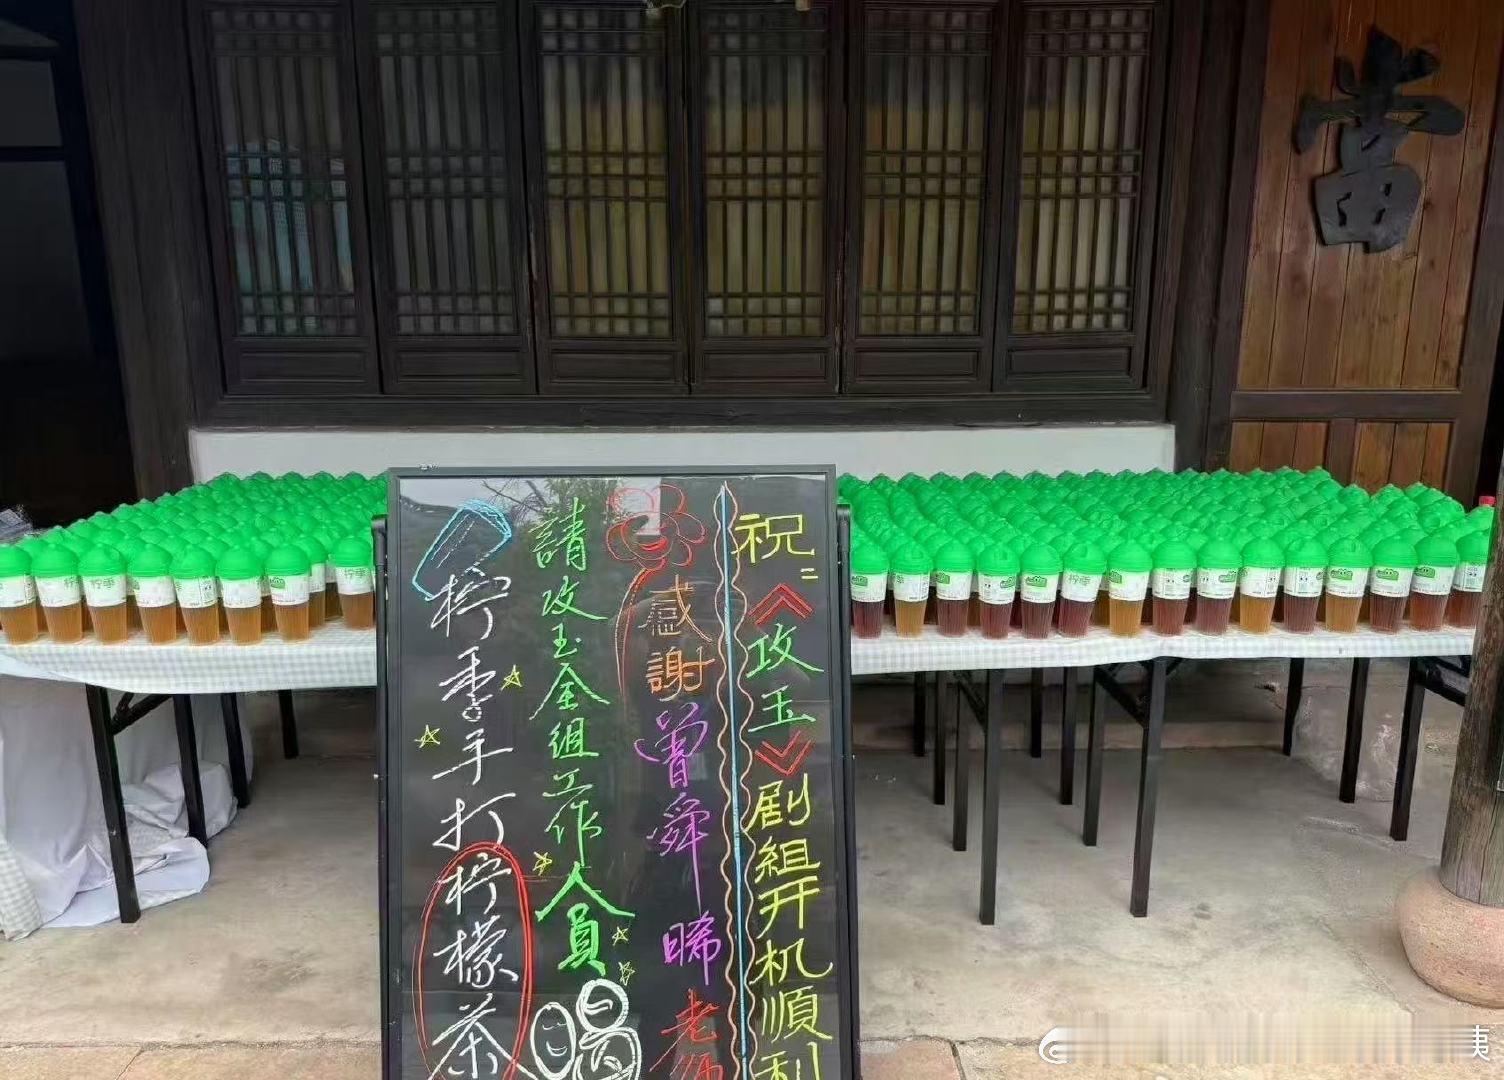 祝:《攻玉》剧組开机順利
感謝曾舜晞老师
請攻玉全組工作人員喝
柠季手打柠檬茶
柠季